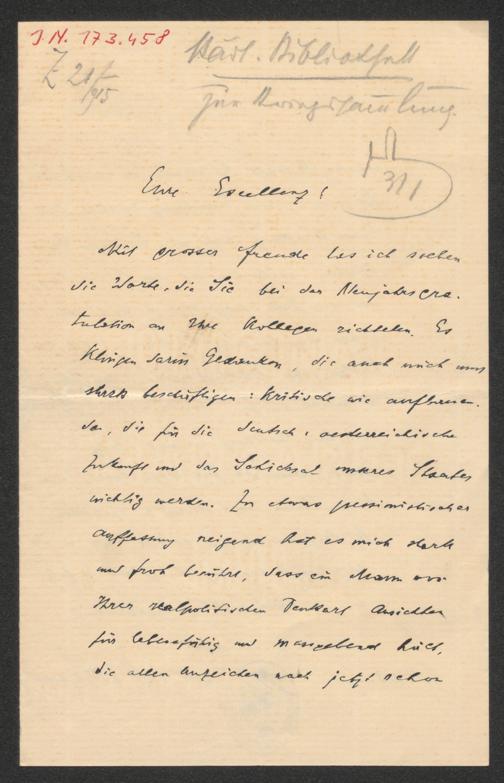 J.N. 173.458
Z 21/I 915
Städt. Bibliothek
zur Kriegssammlung.
311
Eure Excellenz!
Mit grosser Freude las ich soeben
die Worte, die Sie bei der Neujahrsgra-
tulation an Ihre Kollegen richteten. Es
klingen darin Gedanken, die auch mich
stark beschäftigen: kritische wie aufbauen-
de, die für die deutsch-oesterreichische
Zukunft und das Schicksal unseres Staates
wichtig werden. Zu etwas pessimistischer
Auffassung neigend hat es mich stark
und froh berührt, dass ein Mann von
Ihrer realpolitischen Denkart Ansichten
für lebensfähig und massgebend hält,
die allen Anzeichen nach jetzt schon